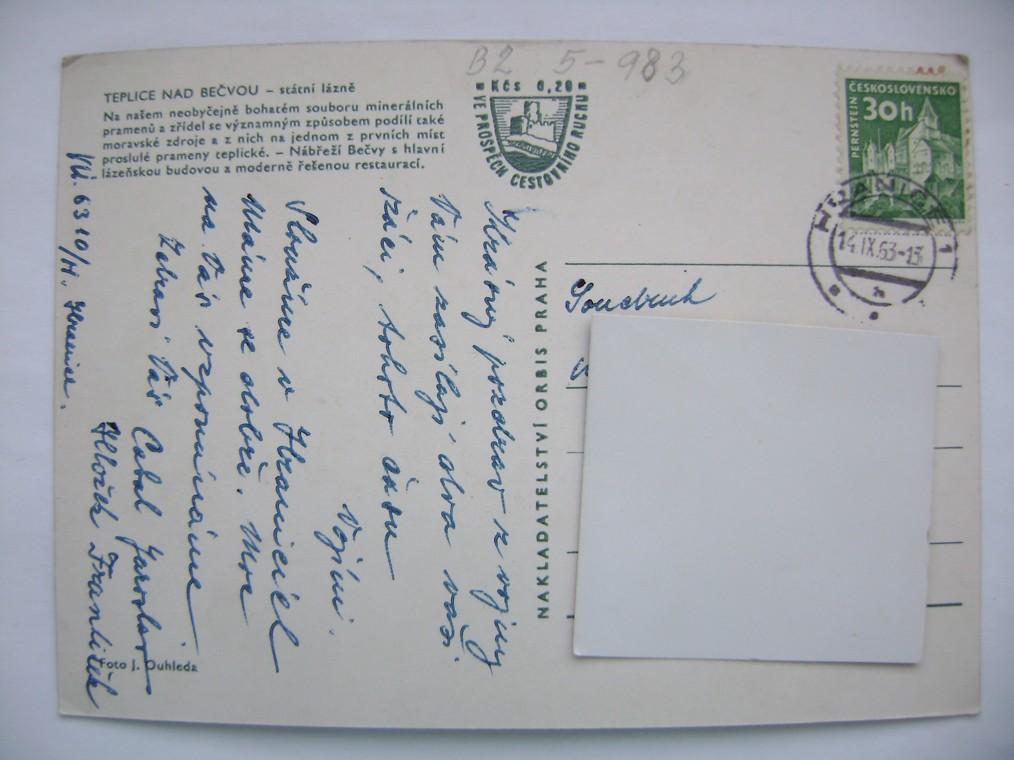 B2 5-983
TEPLICE NAD BEČVOU – státní lázně
Na našem neobyčejně bohatém souboru minerálních
pramenů a zřídel se významným způsobem podílí také
moravské zdroje a z nich na jednom z prvních míst
proslulé prameny teplické. – Nábřeží Bečvy s hlavní
lázeňskou budovou a moderně řešenou restaurací.
Kčs 0,20
VE PROSPĚCH CESTOVNÍHO RUCHU
ČESKOSLOVENSKO
30h
PERNŠTEJN
HRANICE 1
14.IX.63-13
h
Krásný pozdrav z vojny
Vám zasílají dva vaši
žáci, toho času
Vojíni.
Sloužíme v Hranicích
Máme se dobře. Moc
na Vás vzpomínáme
Zdraví Váš Cabal Jaroslav
František
VÚ. 6310/H. Hranice.
Soudruh
NAKLADATELSTVÍ ORBIS PRAHA
Foto J. Ouhleda